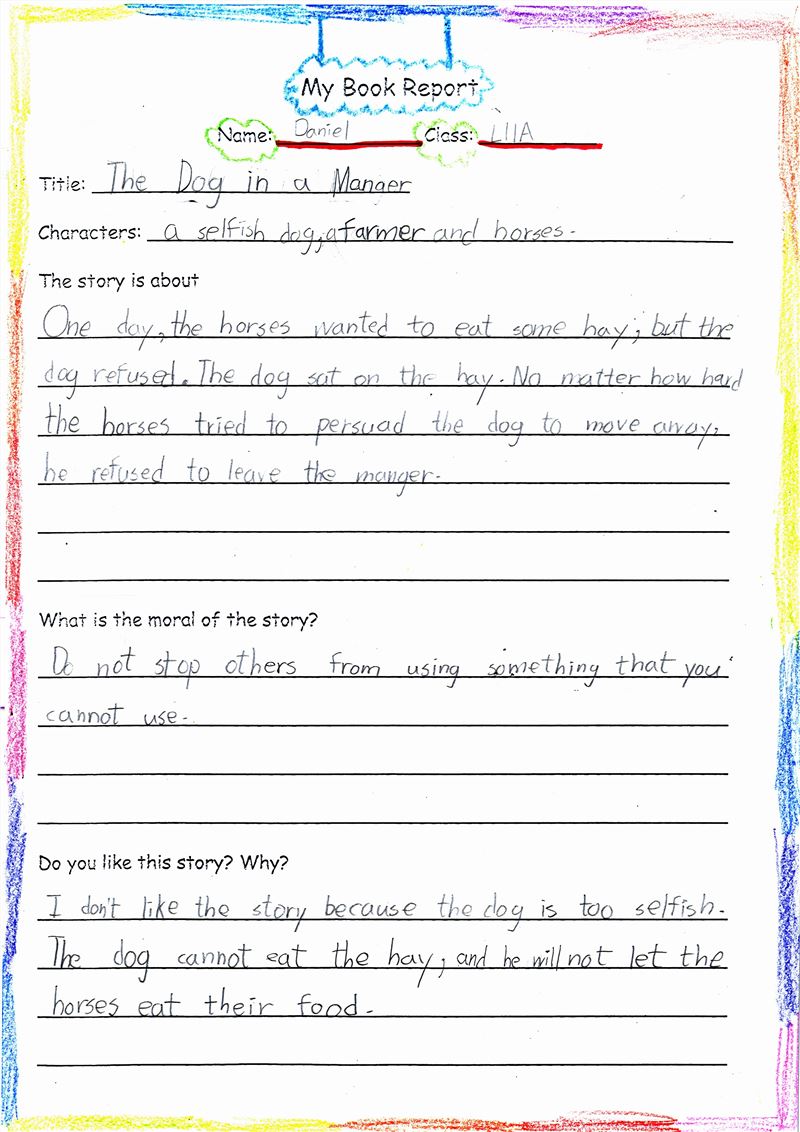 My Book Report
Name: Daniel Class: L11A
Title: The Dog in a Manger
Characters: a selfish dog, a farmer and horses.
The story is about
One day, the horses wanted to eat some hay; but the
dog refused. The dog sat on the hay. No matter how hard
the horses tried to persuad the dog to move away,
he refused to leave the manger.
What is the moral of the story?
Do not stop others from using something that you
cannot use.
Do you like this story? Why?
I don't like the story because the dog is too selfish.
The dog cannot eat the hay, and he will not let the
horses eat their food.